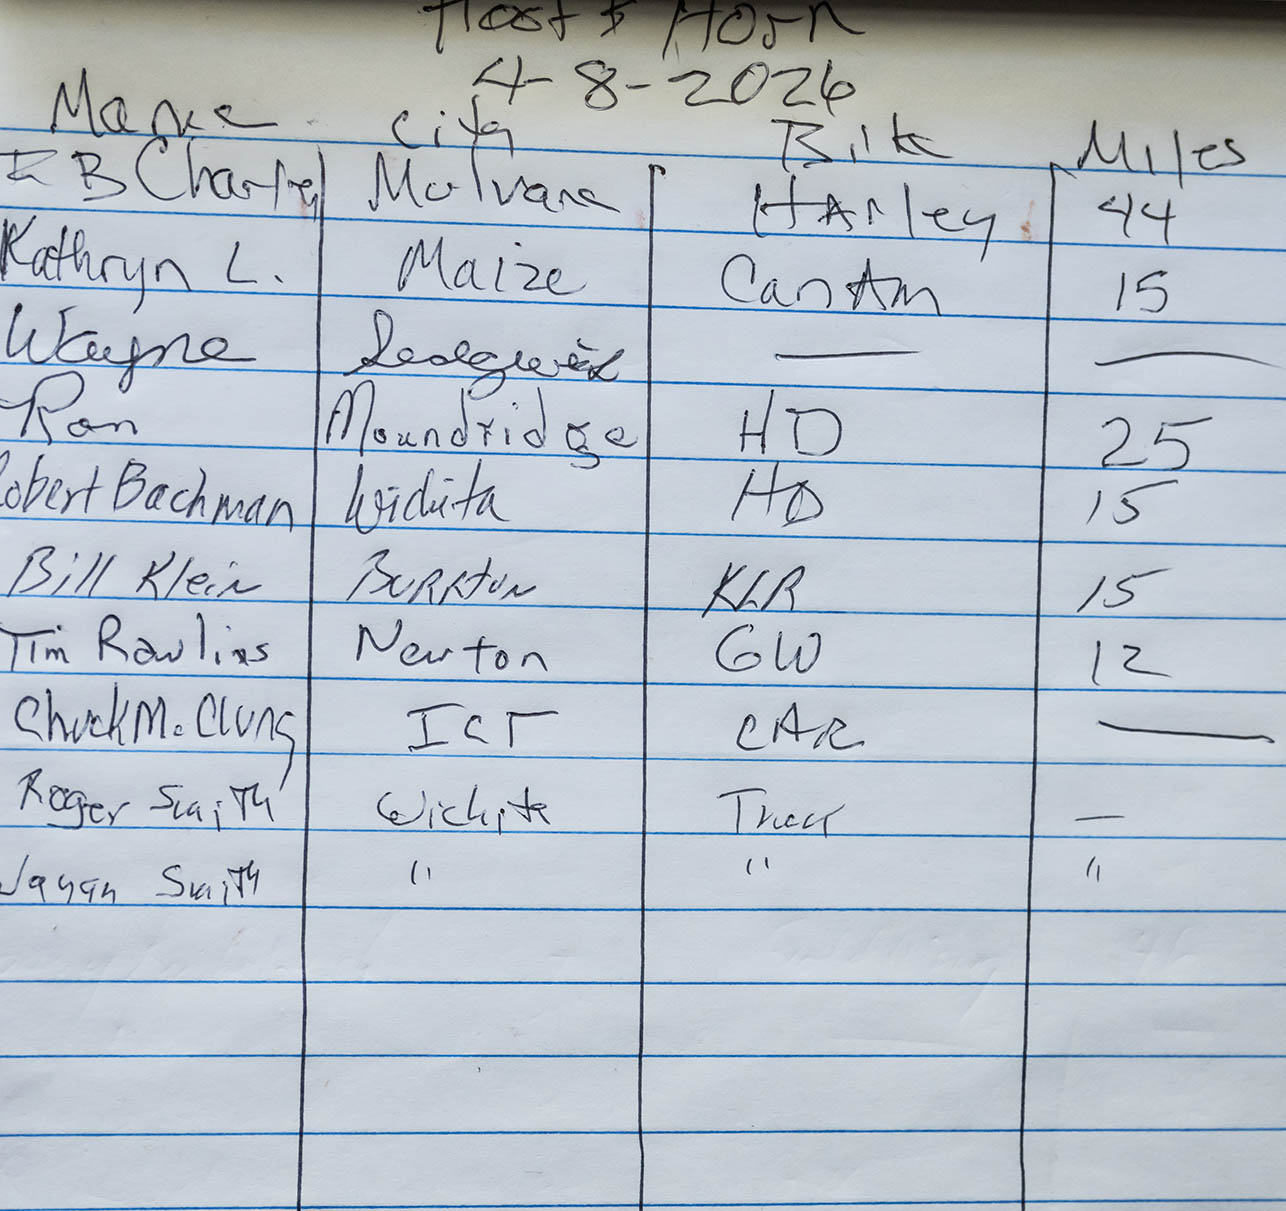 Hoof & Horn
4-8-2026
Name City Bike Miles
EB Charley Mulvane Harley 44
Kathryn L. Maize Can Am 15
Wayne Sedgwick — —
Ron Moundridge HD 25
Robert Bachman Wichita HD 15
Bill Klein Burrton KLR 15
Tim Rawlins Newton GW 12
Chuck McClung ICT CAR —
Roger Smith Wichita Truck —
Smith " " "